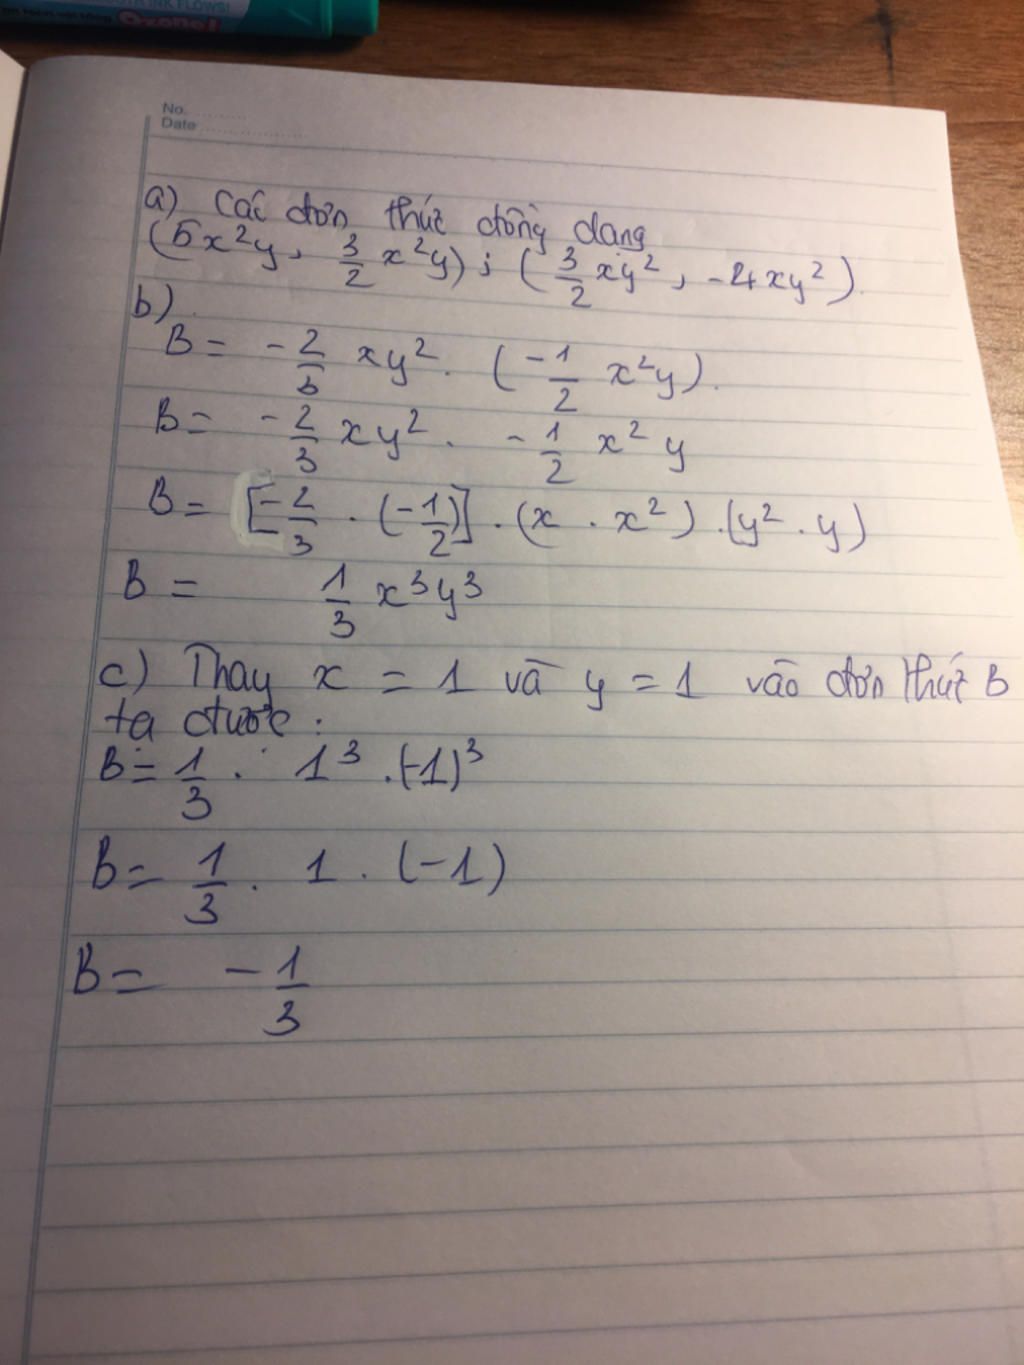 INK FLOWS!
Ozone!
No. ............
Date ......................
a) Các đơn thức đồng dạng
(5x²y, 3/2 x²y) ; (3/2 xy², -4xy²).
b)
B = -2/3 xy² . (-1/2 x²y).
B = -2/3 xy² . -1/2 x² y
B = [-2/3 . (-1/2)] . (x . x²) . (y² . y)
B = 1/3 x³y³
c) Thay x = 1 và y = 1 vào đơn thức B
ta được :
B = 1/3 . 1³ . (-1)³
B = 1/3 . 1 . (-1)
B = -1/3